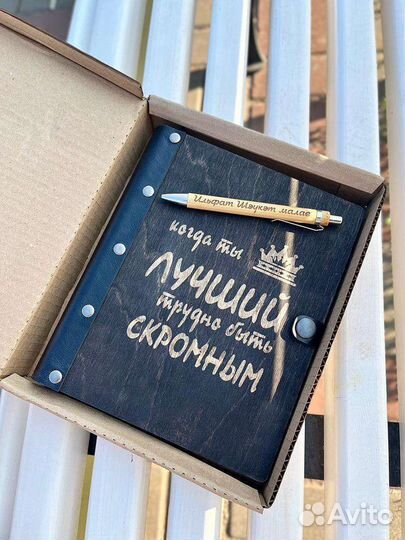 Ильфат Шәүкәт малае
когда ты
ЛУЧШИЙ
трудно быть
СКРОМНЫМ
Avito